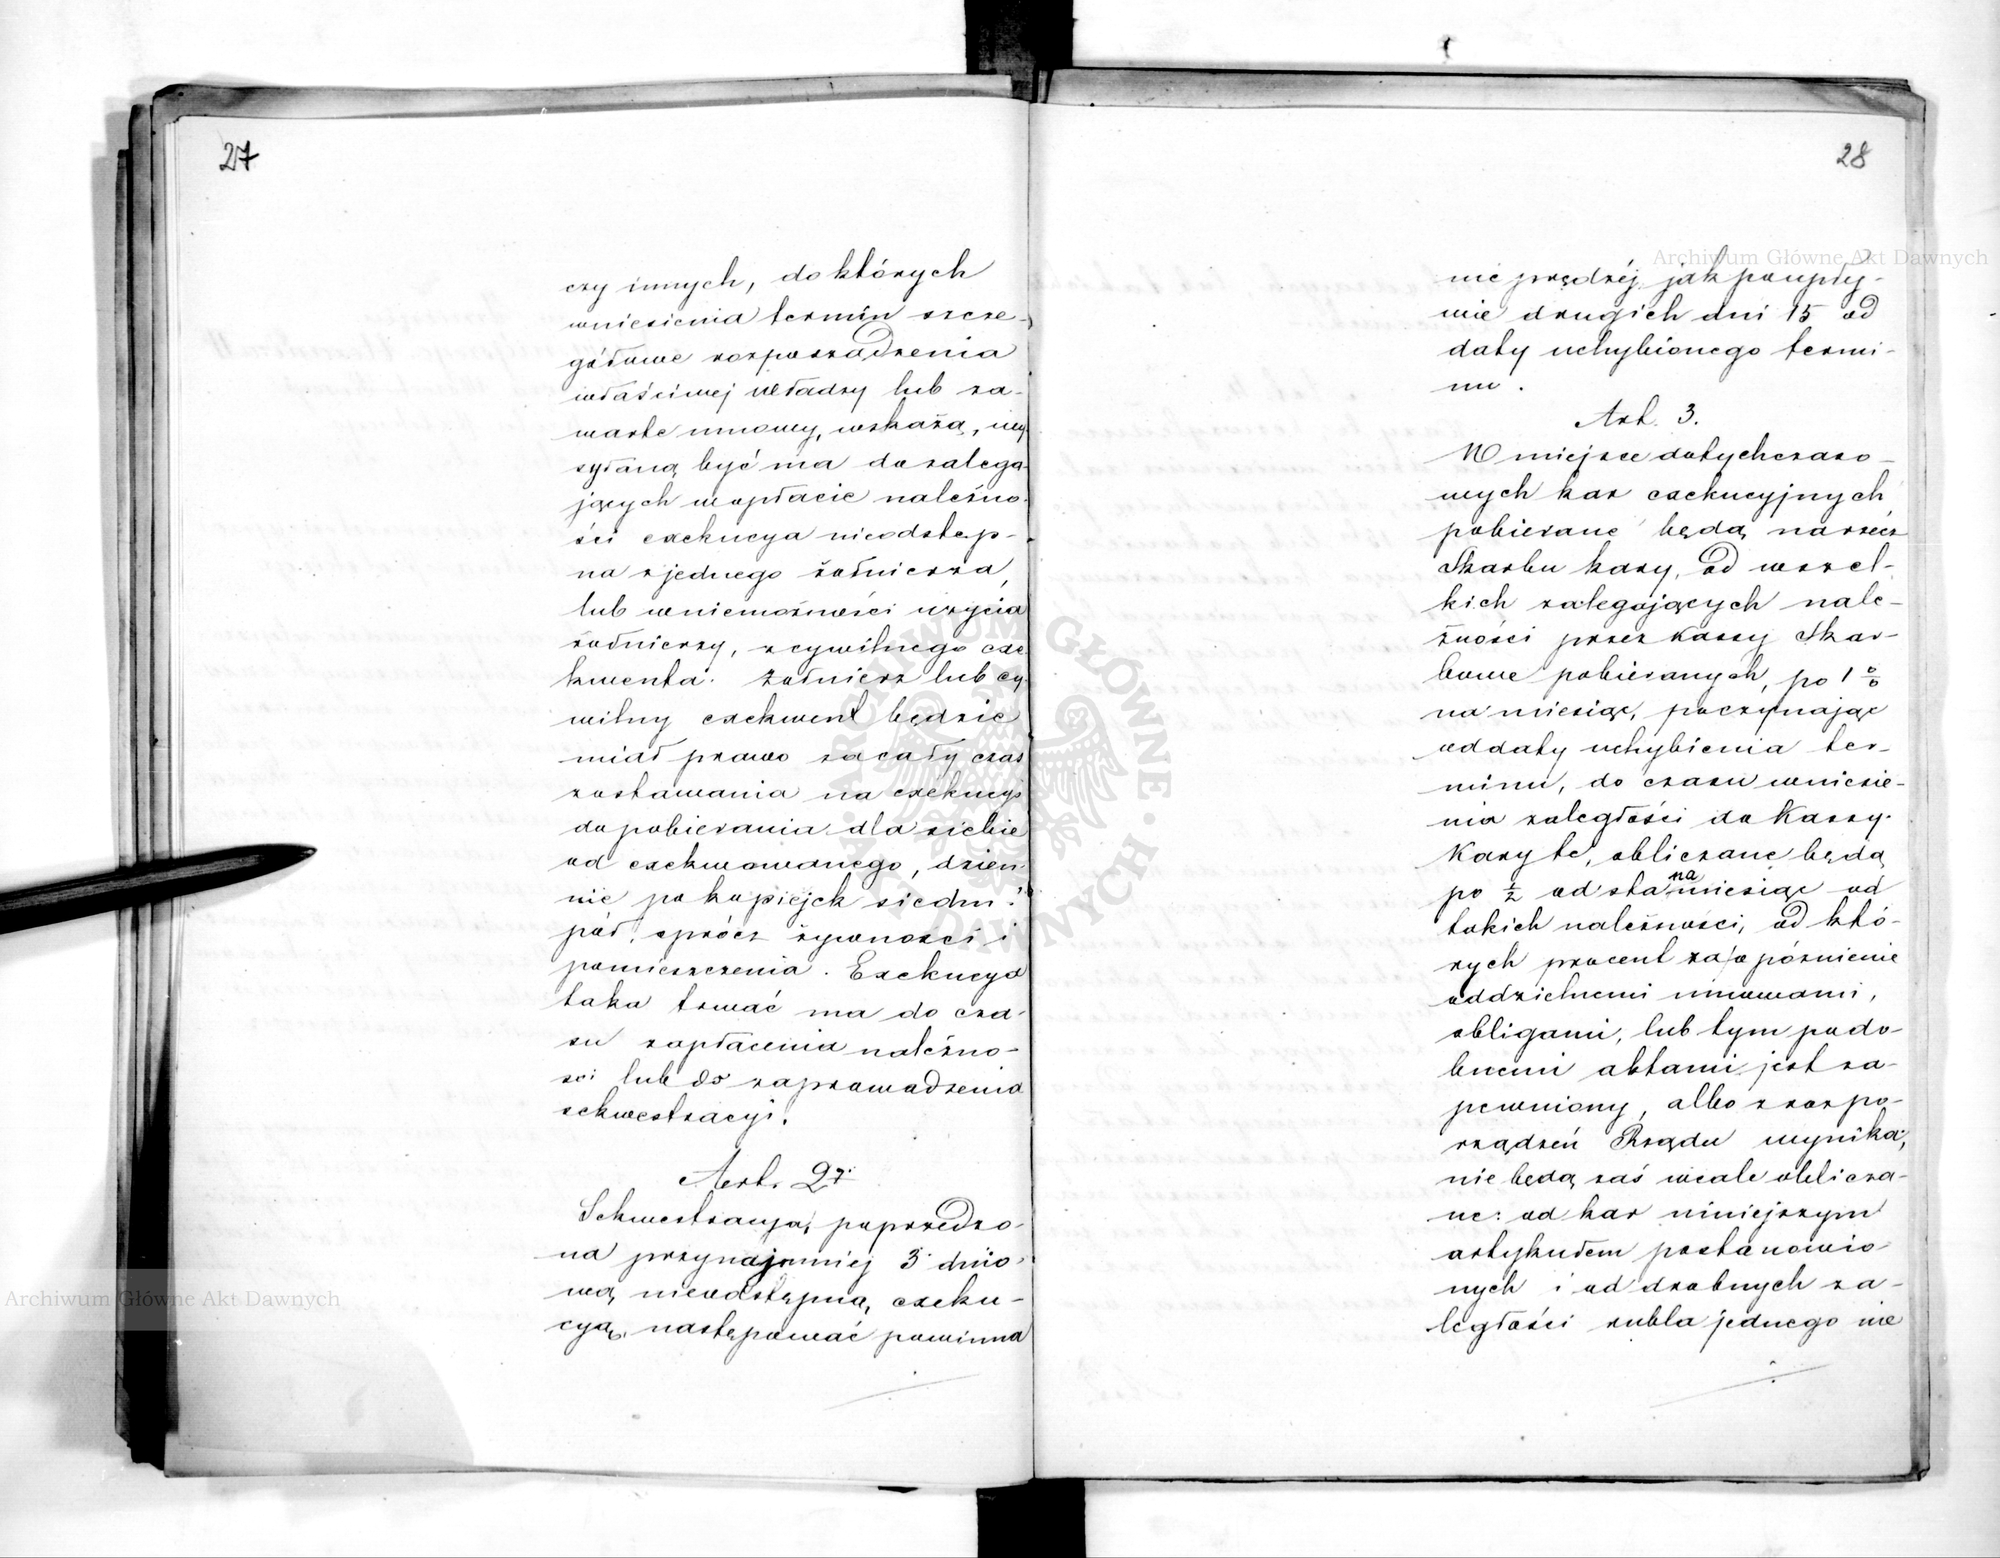 27
czy innych, do których
wniesienia termin szcze-
gółowe rozporządzenia
właściwej władzy lub za-
warte umowy, wskażą, wy
syłaną być ma do zalega
jących w opłacie należno-
ści exekucya nieodstęp-
na z jednego żołnierza,
lub w niemożności użycia
żołnierzy, z cywilnego exe
kwenta. Żołnierz lub cy
wilny exekwent będzie
miał prawo za cały czas
zostawania na exekucyi
do pobierania dla siebie
od exekwowanego, dzien-
nie po kopiejek siedm i
pół, oprócz żywności i
pomieszczenia. Exekucya
taka trwać ma do cza-
su zapłacenia należno-
ści lub do zaprowadzenia
sekwestracyi.
Art. 2
Sekwestracya, poprzedzo-
na przynajmniej 3 dnio-
wą nieodstępną, exeku-
cyą, następować powinna
28
nie prędzéj jak po upły-
wie drugich dni 15 od
daty uchybionego termi-
nu.
Art. 3.
W miejsce dotychczaso-
wych kar exekucyjnych
pobierane będą na rzecz
Skarbu kary, od wszel-
kich zalegających nale-
żności przez Kassy Skar-
bowe pobieranych, po 1 %
na miesiąc, poczynając
od daty uchybienia ter-
minu, do czasu wniesie-
nia zaległości do Kassy.
Kary te, obliczane będą
po ½ od sta na miesiąc od
takich należności, od któ-
rych procent za opóźnienie
oddzielnemi umowami,
obligami, lub tym podo-
bnemi aktami jest za-
pewniony, albo z rozpo-
rządzeń Rządu wynika,
nie będą zaś wcale oblicza-
ne: od kar niniejszym
artykułem postanowio-
nych i od drobnych za-
ległości rubla jednego nie
Archiwum Główne Akt Dawnych
Archiwum Główne Akt Dawnych
ARCHIWUM GŁÓWNE AKT DAWNYCH